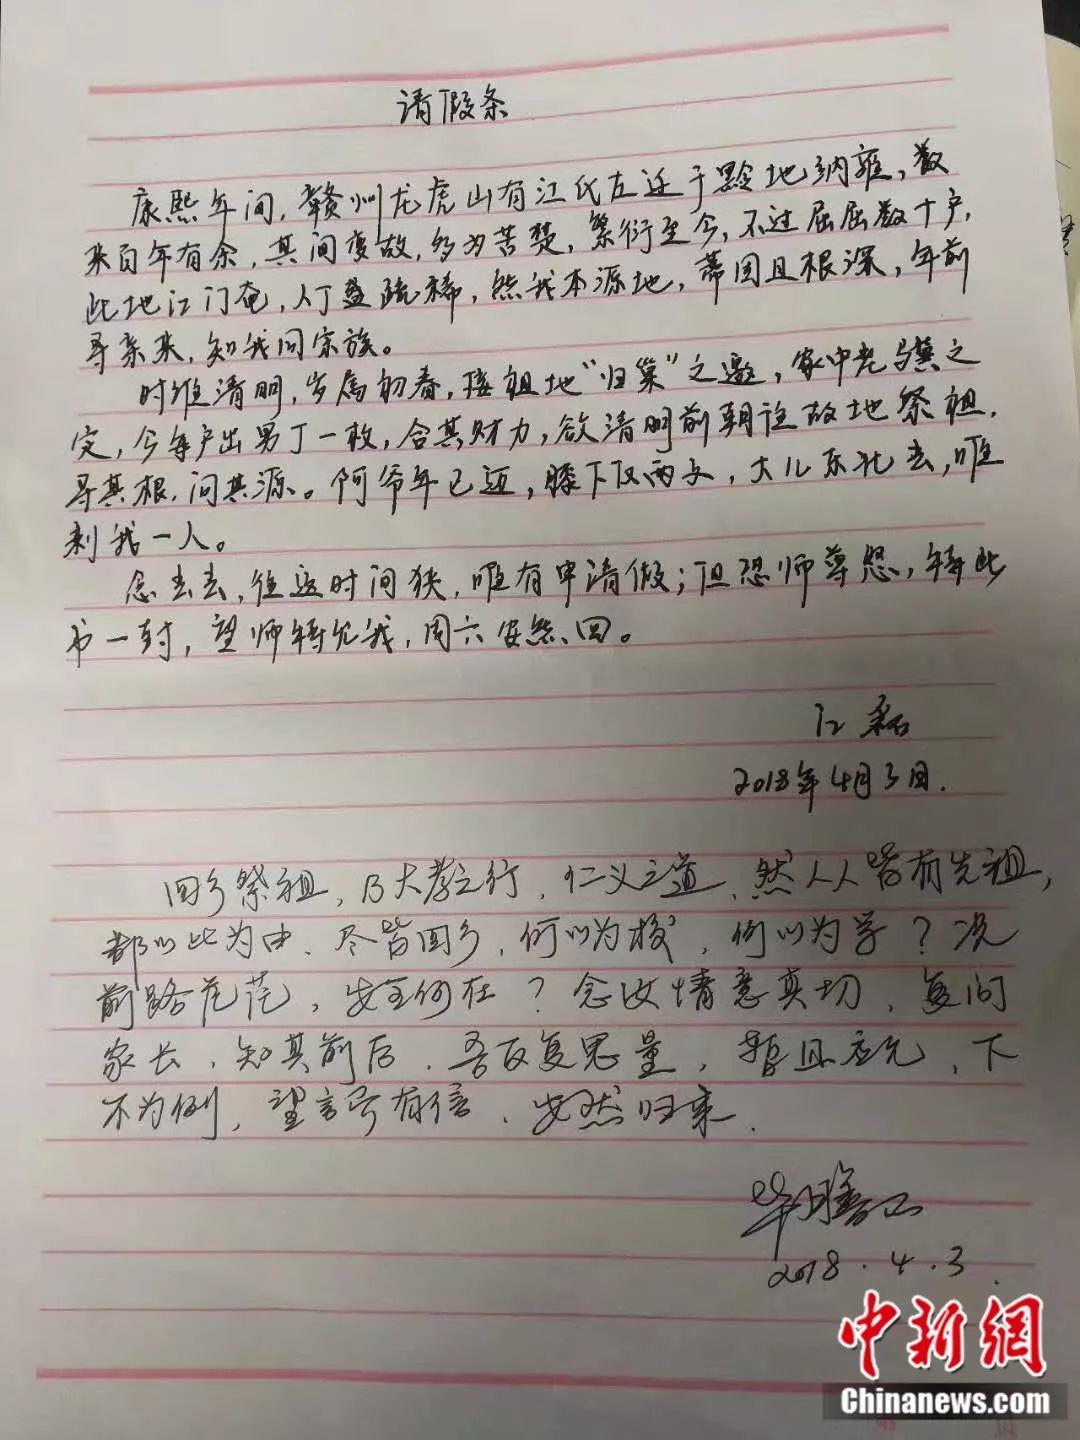 请假条
康熙年间，赣州龙虎山有江氏左迁于黔地纳雍，数
来百年有余，其间变故，多为苦楚，繁衍至今，不过屈屈数十户，
此地江门奄，人丁盈疏稀，然我本源地，蒂固且根深，年前
寻亲来，知我同宗族。
时维清明，岁属初春，接祖地“归巢”之邀，家中老与冀之
定，今每户出男丁一枚，合其财力，欲清明前朝往故地祭祖，
寻其根，问其源。阿爷年已迈，膝下仅两子，大儿东北去，唯
剩我一人。
念去去，往返时间狭，唯有申请假；但恐师尊怒，特此
书一封，望师特允我，周六安然回。
江磊
2018年4月3日.
回乡祭祖，乃大孝之行，仁义之道，然人人皆有先祖，
都以此为由，尽皆回乡，何以为校，何以为学？况
前路茫茫，安全何在？念汝情意真切，复问
家长，知其前后，吾反复思量，暂且应允，下
不为例，望言守有信，安然归来.
2018.4.3.
中新网
Chinanews.com